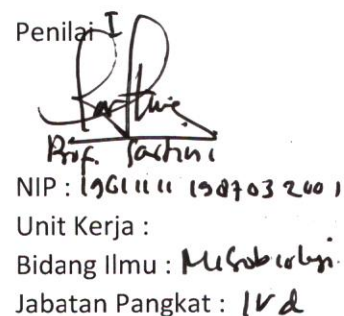 Penilai I
Prof. Sartini
NIP : 19611111 198703 2001
Unit Kerja :
Bidang Ilmu : Mikrobiologi
Jabatan Pangkat : IV d